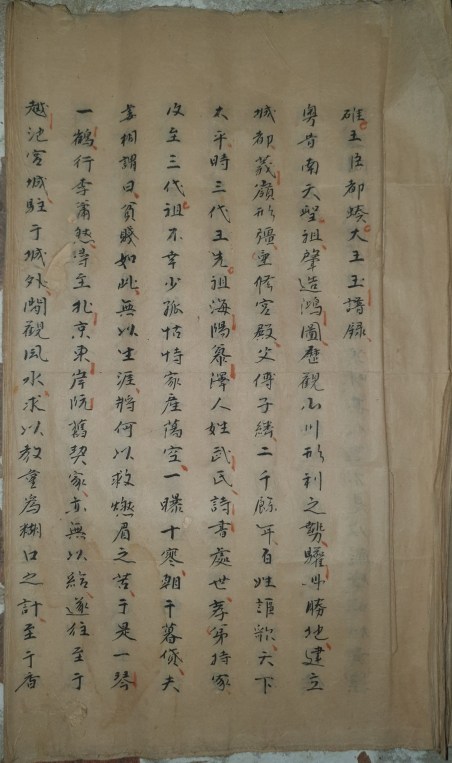 雄王臣都婆大王玉譜錄
粵昔南天聖祖肇造鴻圖歷觀山川形利之勢擇得勝地建立
城都義嶺形彊重修宮殿父傳子繼二千餘年百姓謳歌天下
太平時三代王先祖海陽幕澤人姓武氏詩書處世孝弟持家
及至三代祖不幸少孤怙恃家產蕩空一曝十寒朝干暮貸夫
妻相謂曰貧賤如此無以生涯將何以救燃眉之苦于是一琴
一鶴行李蕭然尋至北京東岸阮舊契家亦無以給遂往至于
越池宮城駐于城外閒觀風水求以教童為糊口之計至于香